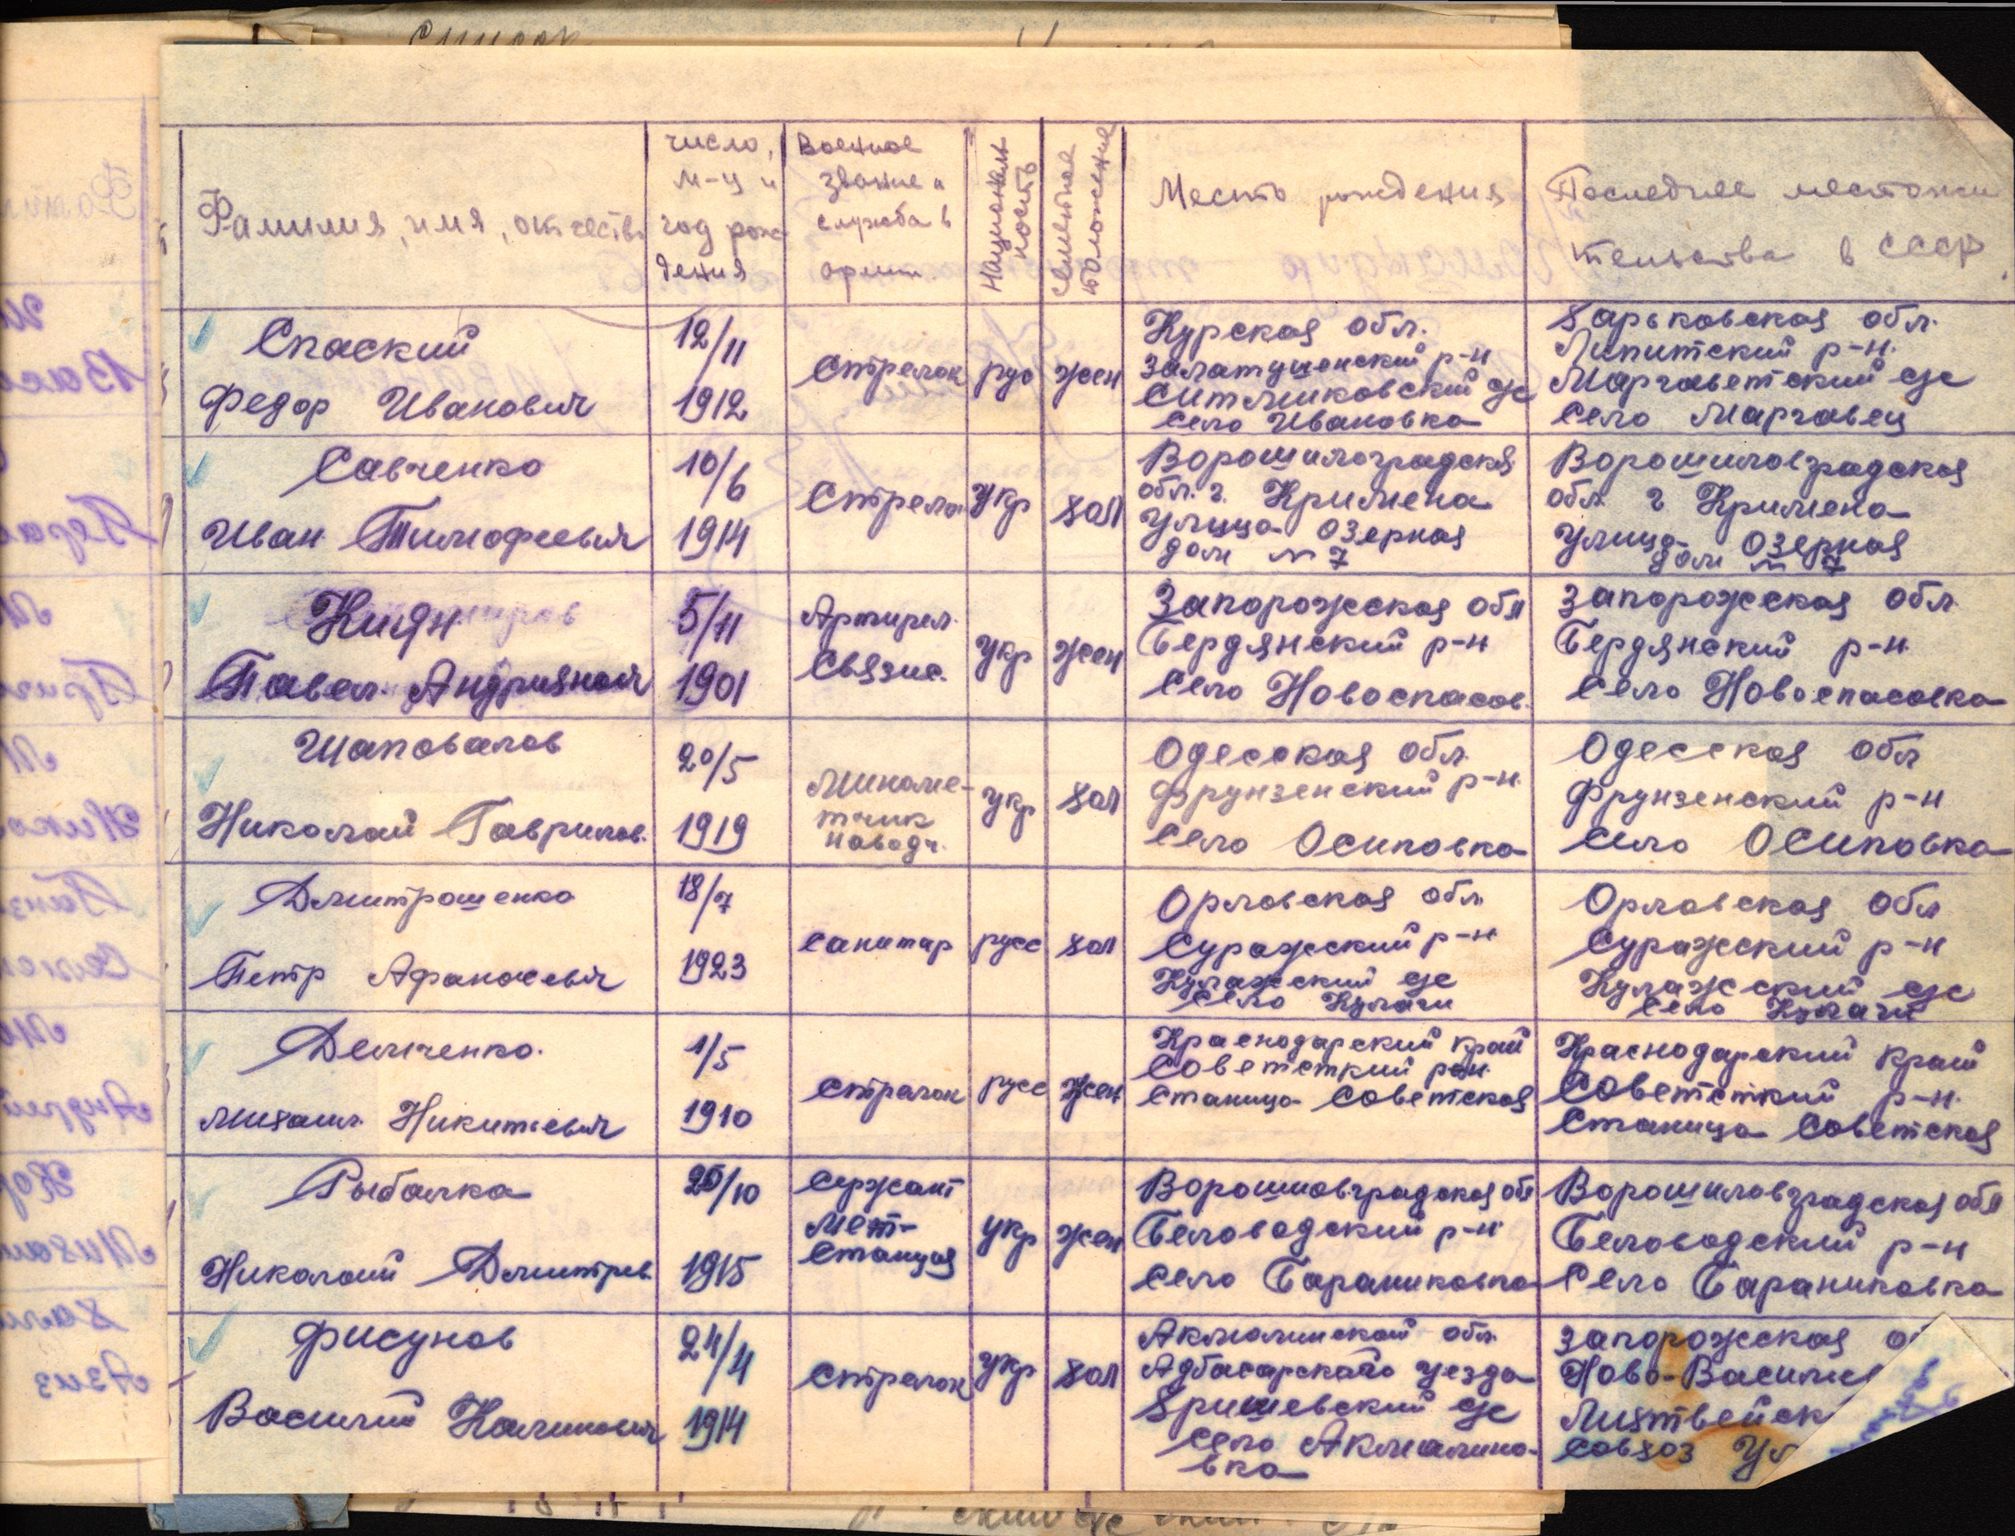 Фамилия, имя, отчество
число,
м-ц и
год рож
дения
Военное
звание и
служба в
армии
Националь
ность
Семейное
положение
Место рождения
Последнее местожи
тельства в СССР
Спаский
Федор Иванович
12/11
1912
Стрелок
рус
жен
Курская обл.
Залатушенский р-н
Ситмиковский с/с
село Ивановка
Харьковская обл.
Липитский р-н.
Маргаветский с/с
село Маргавец
Савченко
Иван Тимофеевич
10/6
1914
Стрело
Укр
хол
Ворошилоградская
обл. г. Кримена
Улица Озерная
дом № 7
Ворошиловградская
обл. г Кримена
Улица Озерная
дом № 7
Киян
Павел Андриянович
5/11
1901
Артирел.
Связис.
укр
жен
Запорожская обл
Бердянский р-н
село Новоспасов.
Запорожская обл
Бердянский р-н
село Новоспасовка
Шаповалов
Николай Гаврилов.
20/5
1919
Миноме-
тчик
наводч.
укр
хол
Одесская обл.
Фрунзенский р-н.
село Осиповка
Одесская обл
Фрунзенский р-н
село Осиповка
Дмитрошенко
Петр Афанасевич
18/7
1923
санитар
русс
хол
Орловская обл
Суражский р-н
Кулажский с/с
село Кулаги
Орловская обл
Суражский р-н
Кулажский с/с
село Кулаги
Демченко.
Михаил Никитиевич
1/5
1910
стрелок
русс
жен
Краснодарский край
Советсткий рон
Станица Советская
Краснодарский край
Советсткий р-н.
Станица Советская
Рыбалка
Николай Дмитрев.
20/10
1915
сержант
Мет-
станция
укр
жен
Ворошиовградская обл
Беловодский р-н
село Бараниковка
Ворошиловградская обл
Беловодский р-н
село Бараниковка
Фисунов
Василий Калинович
24/4
1914
стрелок
укр
хол
Акмолинской обл.
Адбасарского уезда
Хришевский с/с
село Акмалино-
вка
Запорожская о
Ново-Василье
Лихтвейск
совхоз Ул